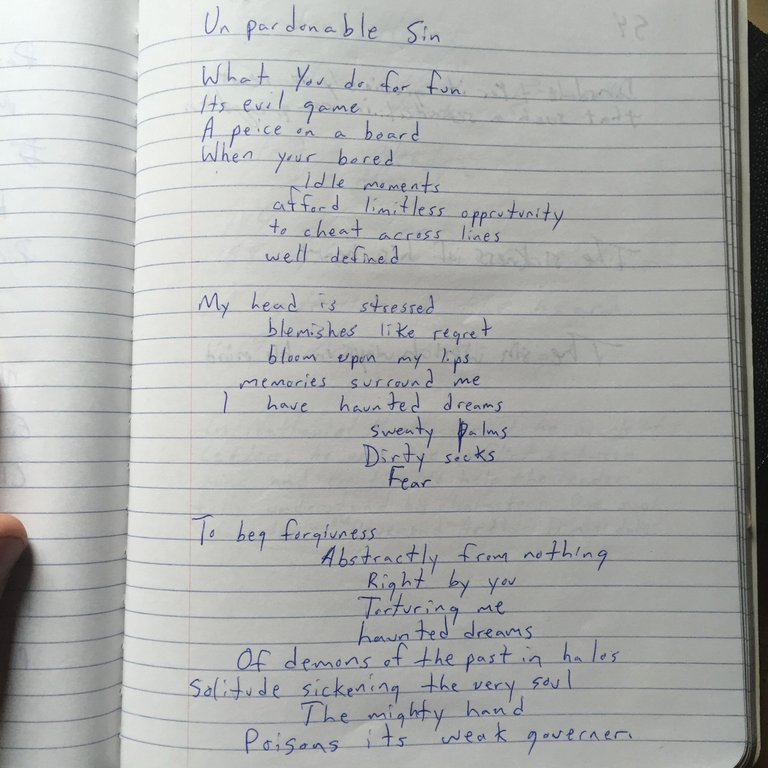 Un pardonable Sin
What You do for fun.
Its evil game
A peice on a board
When your bored
Idle moments
afford limitless opprutunity
to cheat across lines
well defined
My head is stressed
blemishes like regret
bloom upon my lips
memories surround me
I have haunted dreams
sweaty palms
Dirty socks
Fear
To beg forgivness
Abstractly from nothing
Right by you
Torturing me
haunted dreams
Of demons of the past in halos
Solitude sickening the very soul
The mighty hand
Poisons its weak governer.